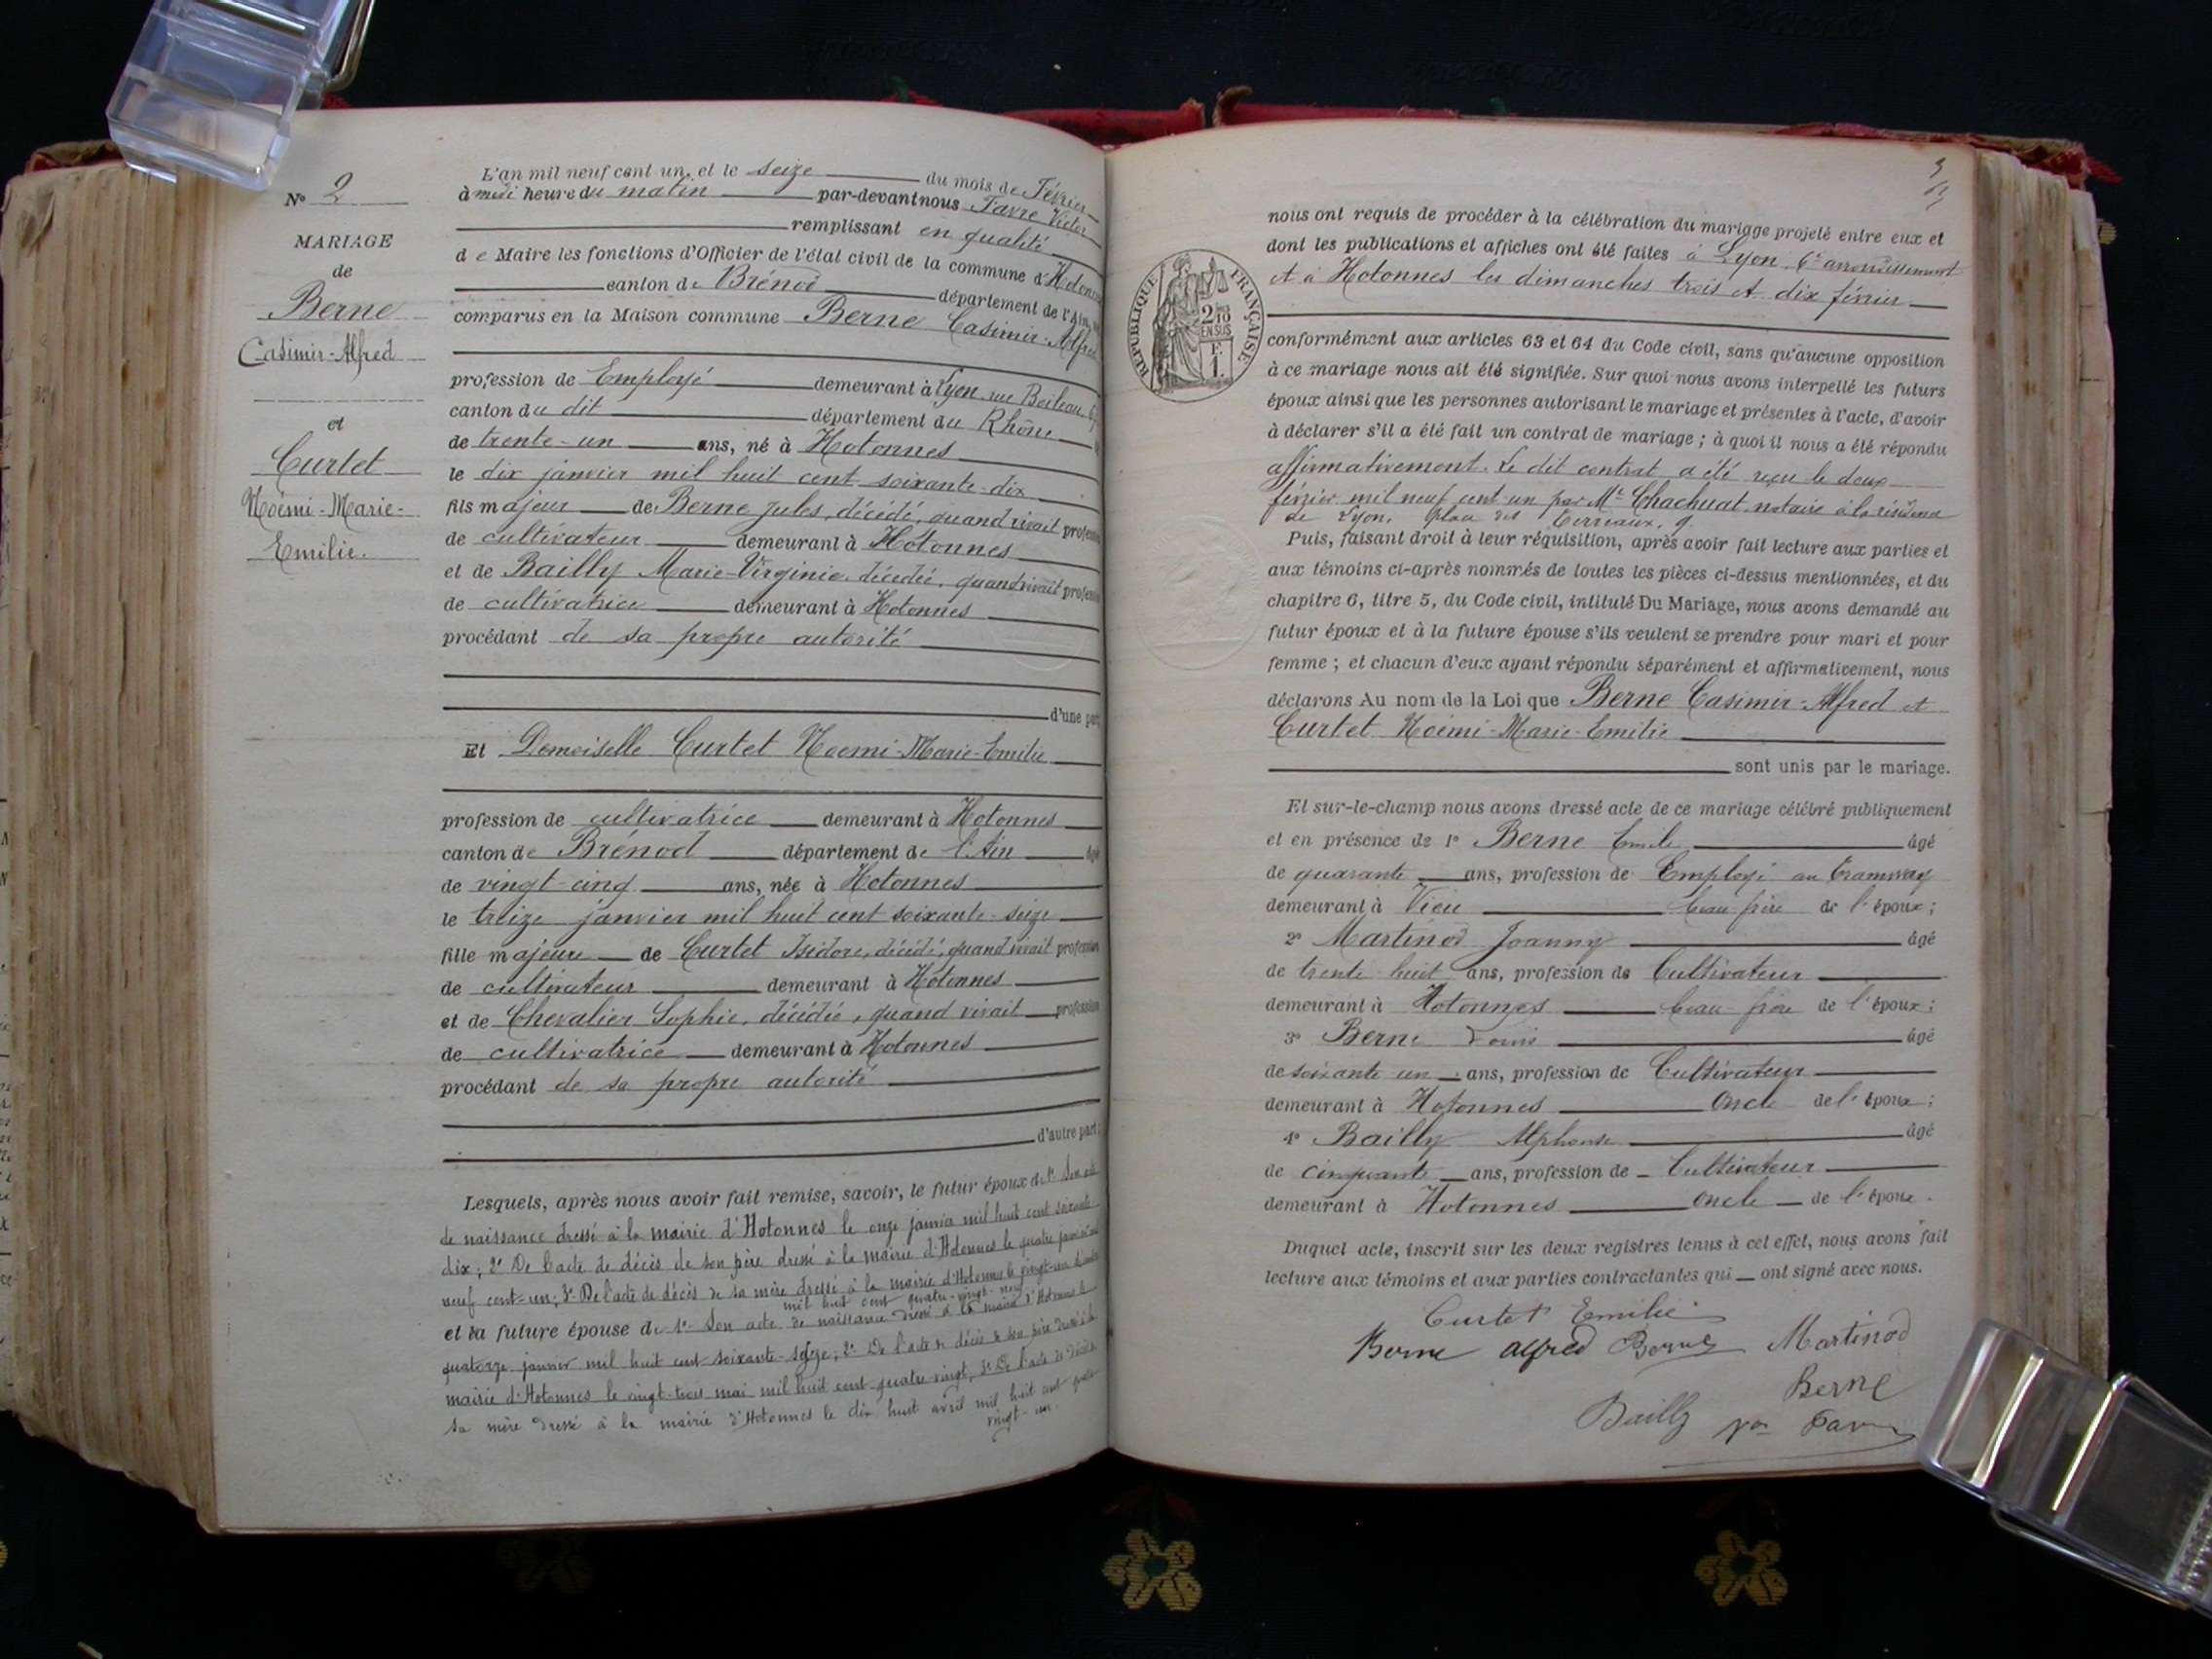 N° 2
MARIAGE
de
Berne
Casimir-Alfred
et
Curtet
Noémi-Marie-
Emilie.
L'an mil neuf cent un, et le seize du mois de Février
à midi heure du matin par-devant nous Favre Victor
remplissant en qualité
de Maire les fonctions d'Officier de l'état civil de la commune d'Hotonnes
canton de Brénod département de l'Ain,
comparus en la Maison commune Berne Casimir-Alfred
profession de Employé demeurant à Lyon rue Boileau
canton du dit département du Rhône
de trente-un ans, né à Hotonnes
le dix janvier mil huit cent soixante-dix
fils majeur de Berne Jules, décédé, quand vivait profession
de cultivateur demeurant à Hotonnes
et de Bailly Marie-Virginie, décédée, quand vivait profession
de cultivatrice demeurant à Hotonnes
procédant de sa propre autorité
d'une part
Et Demoiselle Curtet Noemi-Marie-Emilie
profession de cultivatrice demeurant à Hotonnes
canton de Brénod département de l'Ain âgé
de vingt-cinq ans, née à Hotonnes
le treize janvier mil huit cent soixante-seize
fille majeure de Curtet Isidore, décédé, quand vivait profession
de cultivateur demeurant à Hotonnes
et de Chevalier Sophie, décédée, quand vivait profession
de cultivatrice demeurant à Hotonnes
procédant de sa propre autorité
d'autre part;
Lesquels, après nous avoir fait remise, savoir, le futur époux de 1° Son acte
de naissance dressé à la mairie d'Hotonnes le onze janvier mil huit cent soixante-
dix; 2° De l'acte de décès de son père dressé à la mairie d'Hotonnes le quatre janvier mil
neuf cent-un; 3° De l'acte de décès de sa mère dressé à la mairie d'Hotonnes le vingt-un
mil huit cent quatre-vingt-neuf
et la future épouse de 1° Son acte de naissance dressé à la mairie d'Hotonnes le
quatorze janvier mil huit cent soixante-seize; 2° De l'acte de décès de son père dressé à la
mairie d'Hotonnes le vingt-trois mai mil huit cent quatre-vingt; 3° De l'acte de décès
sa mère dressé à la mairie d'Hotonnes le dix huit avril mil huit cent quatre
vingt-un.
3
RÉPUBLIQUE FRANÇAISE
nous ont requis de procéder à la célébration du mariage projeté entre eux et
dont les publications et affiches ont été faites à Lyon 6e arrondissement
et à Hotonnes les dimanches trois et dix février
conformément aux articles 63 et 64 du Code civil, sans qu'aucune opposition
à ce mariage nous ait été signifiée. Sur quoi nous avons interpellé les futurs
époux ainsi que les personnes autorisant le mariage et présentes à l'acte, d'avoir
à déclarer s'il a été fait un contrat de mariage; à quoi il nous a été répondu
affirmativement. Le dit contrat a été reçu le deux
février mil neuf cent un par Me Chachuat notaire à la résidence
de Lyon, place des Terreaux, 9.
Puis, faisant droit à leur réquisition, après avoir fait lecture aux parties et
aux témoins ci-après nommés de toutes les pièces ci-dessus mentionnées, et du
chapitre 6, titre 5, du Code civil, intitulé Du Mariage, nous avons demandé au
futur époux et à la future épouse s'ils veulent se prendre pour mari et pour
femme; et chacun d'eux ayant répondu séparément et affirmativement, nous
déclarons Au nom de la Loi que Berne Casimir-Alfred et
Curtet Noémi-Marie-Emilie
sont unis par le mariage.
Et sur-le-champ nous avons dressé acte de ce mariage célébré publiquement
et en présence de 1° Berne Emile âgé
de quarante ans, profession de Employé au tramway
demeurant à Vieu beau-frère de l'époux;
2° Martinod Joanny âgé
de trente-huit ans, profession de Cultivateur
demeurant à Hotonnes beau-frère de l'époux;
3° Berne Louis âgé
de soixante un ans, profession de Cultivateur
demeurant à Hotonnes oncle de l'époux;
4° Bailly Alphonse âgé
de cinquante ans, profession de Cultivateur
demeurant à Hotonnes oncle de l'époux.
Duquel acte, inscrit sur les deux registres tenus à cet effet, nous avons fait
lecture aux témoins et aux parties contractantes qui ont signé avec nous.
Curtet Emilie
Berne alfred Berne Martinod
Berne
Bailly Favre